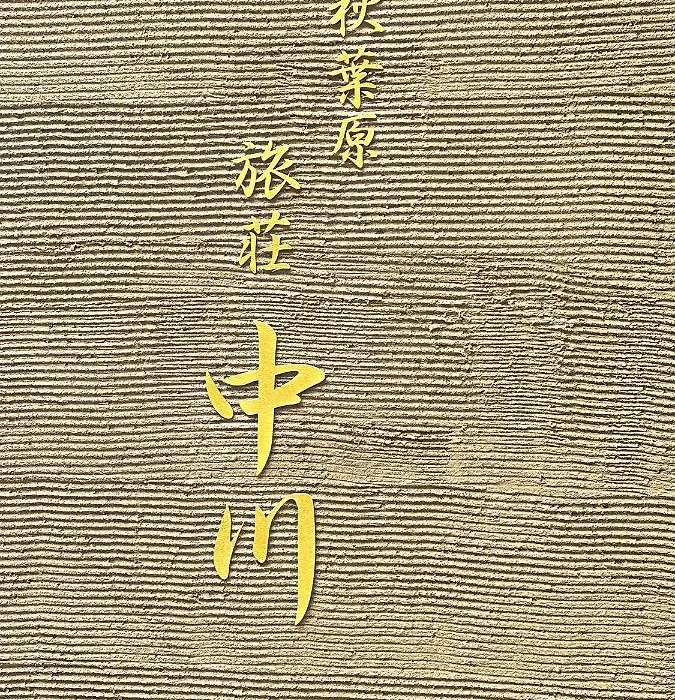 秋葉原
旅荘
中川